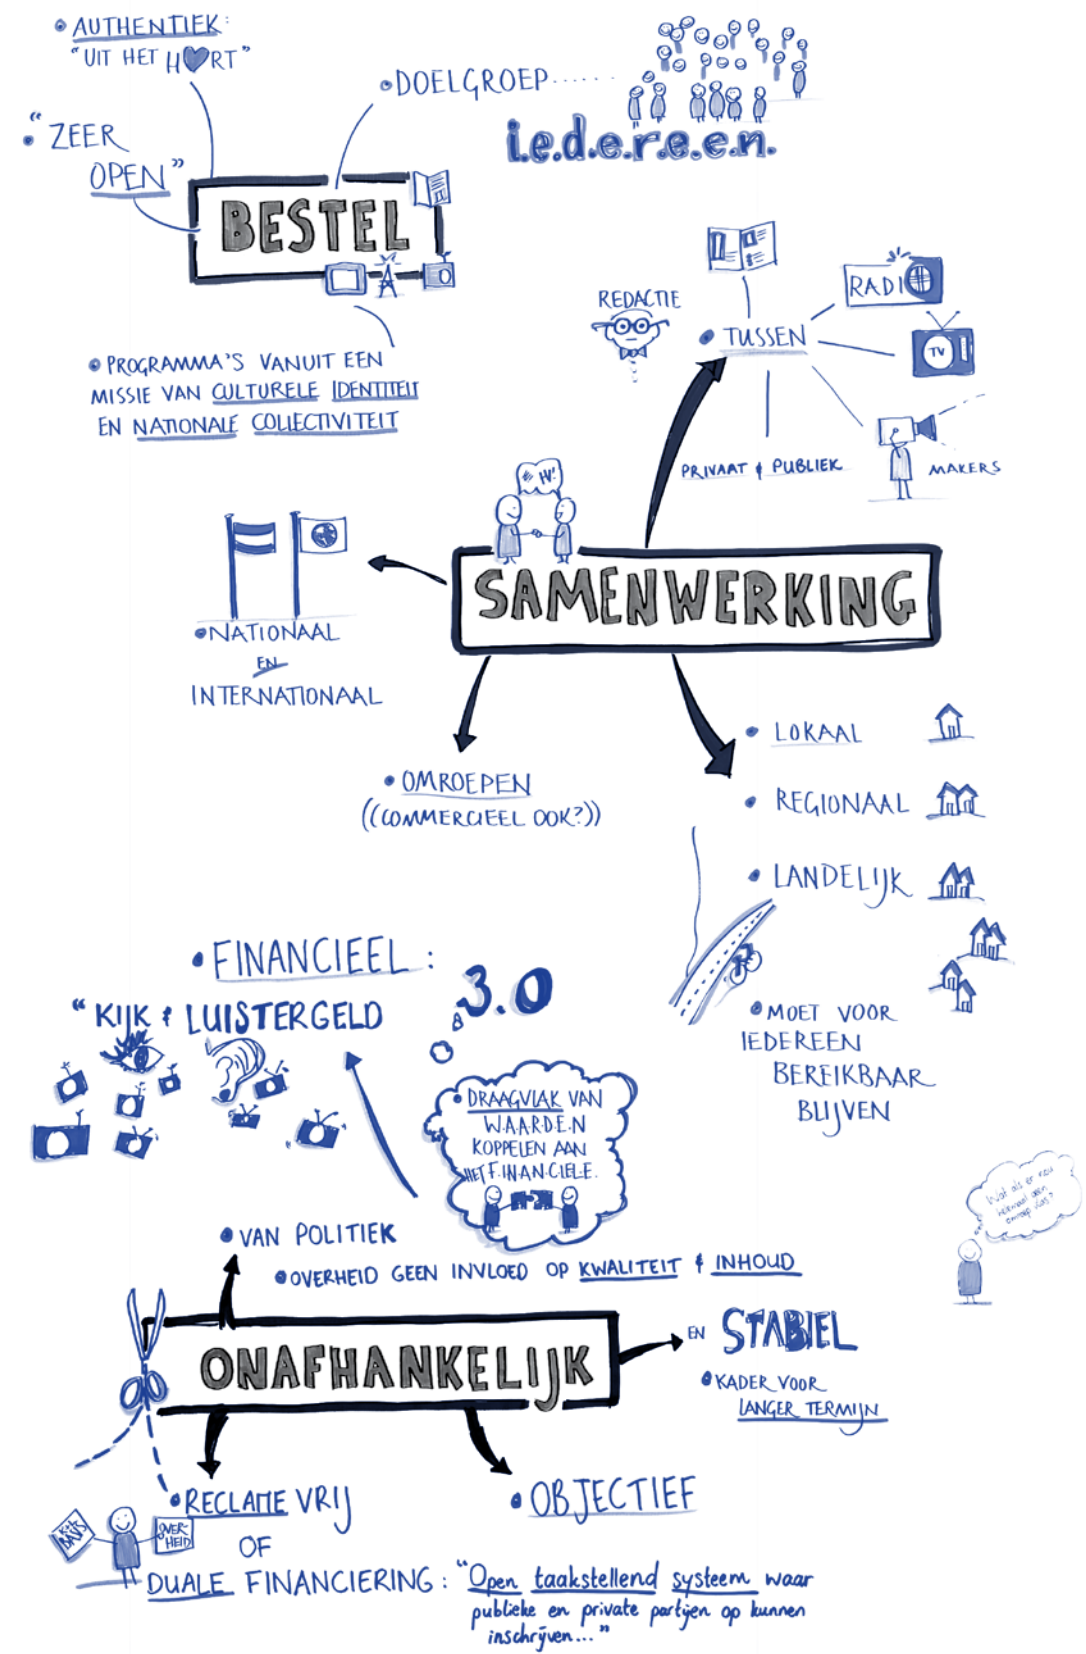 • AUTHENTIEK:
"UIT HET H♥RT"
• "ZEER
OPEN"
• DOELGROEP......
i.e.d.e.r.e.e.n.
BESTEL
• PROGRAMMA'S VANUIT EEN
MISSIE VAN CULTURELE IDENTITEIT
EN NATIONALE COLLECTIVITEIT
REDACTIE
• TUSSEN
RADIO
TV
PRIVAAT & PUBLIEK
MAKERS
HV!
SAMENWERKING
• NATIONAAL
EN
INTERNATIONAAL
• OMROEPEN
((COMMERCIEEL OOK?))
• LOKAAL
• REGIONAAL
• LANDELIJK
• MOET VOOR
IEDEREEN
BEREIKBAAR
BLIJVEN
• FINANCIEEL:
"KIJK & LUISTERGELD
3.0
• DRAAGVLAK VAN
W.A.A.R.D.E.N
KOPPELEN AAN
HET F.IN.AN.C.IEL.E.
Wat als er nou
helemaal geen
omroep was?
• VAN POLITIEK
• OVERHEID GEEN INVLOED OP KWALITEIT & INHOUD
ONAFHANKELIJK
EN STABIEL
• KADER VOOR
LANGER TERMIJN
• RECLAME VRIJ
OF
DUALE FINANCIERING: "Open taakstellend systeem waar
publieke en private partijen op kunnen
inschrijven..."
• OBJECTIEF
OVER-
HEID